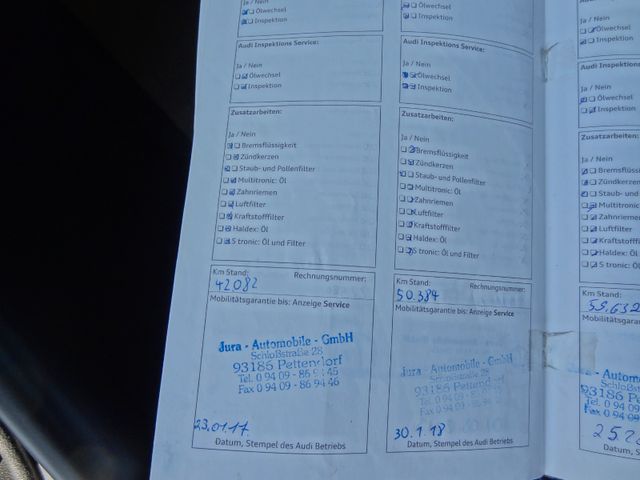 Ja / Nein
Ölwechsel
Inspektion
Audi Inspektions Service:
Ja / Nein
Ölwechsel
Inspektion
Zusatzarbeiten:
Ja / Nein
Bremsflüssigkeit
Zündkerzen
Staub- und Pollenfilter
Multitronic: Öl
Zahnriemen
Luftfilter
Kraftstofffilter
Haldex: Öl
S tronic: Öl und Filter
Km Stand: Rechnungsnummer:
42082
Mobilitätsgarantie bis: Anzeige Service
Jura - Automobile - GmbH
Schloßstraße 28
93186 Pettendorf
Tel. 0 94 09 - 86 94 45
Fax 0 94 09 - 86 94 46
23.01.17
Datum, Stempel des Audi Betriebs
Ja / Nein
Ölwechsel
Inspektion
Audi Inspektions Service:
Ja / Nein
Ölwechsel
Inspektion
Zusatzarbeiten:
Ja / Nein
Bremsflüssigkeit
Zündkerzen
Staub- und Pollenfilter
Multitronic: Öl
Zahnriemen
Luftfilter
Kraftstofffilter
Haldex: Öl
S tronic: Öl und Filter
Km Stand: Rechnungsnummer:
50.384
Mobilitätsgarantie bis: Anzeige Service
Jura - Automobile - GmbH
Schloßstraße 28
93186 Pettendorf
Tel. 0 94 09 - 86
Fax 0 94 09 - 86
30.1.18
Datum, Stempel des Audi Betriebs
Ja / Nein
Ölwechsel
Inspektion
Audi Inspektions
Ja / Nein
Ölwechsel
Inspektion
Zusatzarbeiten:
Ja / Nein
Bremsflüssi
Zündkerzen
Staub- und
Multitronic
Zahnriemen
Luftfilter
Kraftstofff
Haldex: Öl
S tronic: Ö
Km Stand:
59.632
Mobilitätsgarantie
Jura - Autom
Schloßs
93186 P
Tel. 0 94 0
Fax 0 94 09
25.2
Datum, Stem